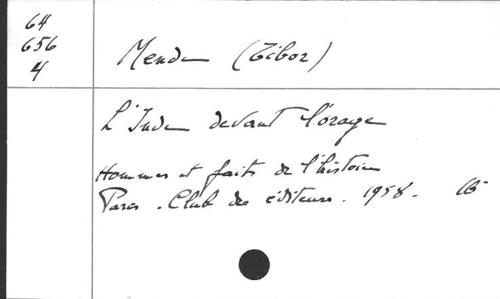 64
656
4
Mende (Tibor)
L'Inde devant l'orage
Hommes et faits de l'histoire
Paris . Club des éditeurs . 1958 .